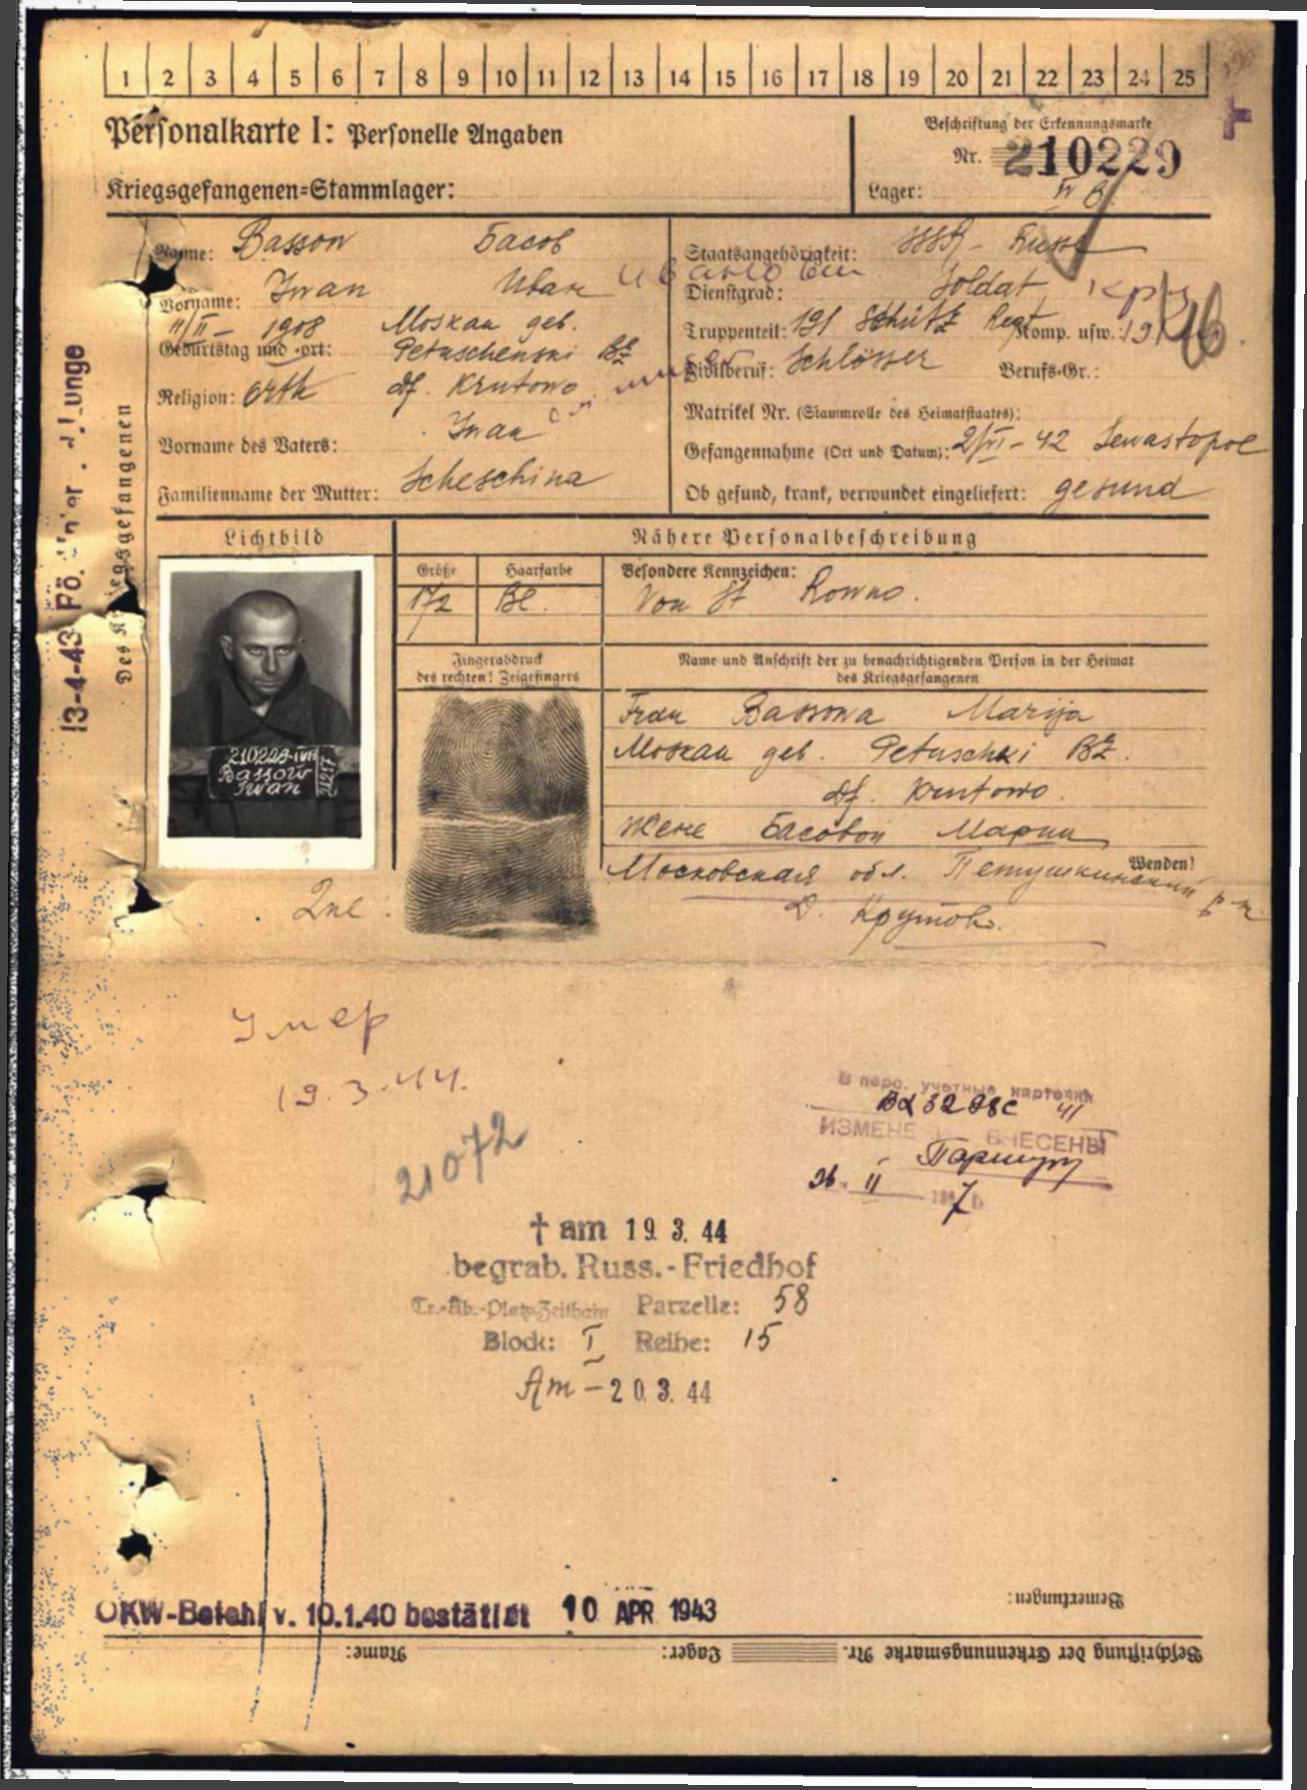 1 2 3 4 5 6 7 8 9 10 11 12 13 14 15 16 17 18 19 20 21 22 23 24 25
Personalkarte I: Personelle Angaben
Kriegsgefangenen=Stammlager:
Beschriftung der Erkennungsmarke
Nr. 210229
Lager: IV B
Name: Basson Басов
Vorname: Iwan Иван Иванович
Geburtstag und -ort: 11/II - 1908 Moskau geb.
Petuschenski Bz
Religion: orth df. Krutowo
Vorname des Vaters: Iwan
Familienname der Mutter: Scheschina
Staatsangehörigkeit: SSSR - Russe
Dienstgrad: Soldat
Truppenteil: 191 Schütz Regt Komp. usw.:
Zivilberuf: Schlösser Berufs-Gr.:
Matrikel Nr. (Stammrolle des Heimatstaates):
Gefangennahme (Ort und Datum): 2/VI - 42 Sewastopol
Ob gesund, krank, verwundet eingeliefert: gesund
13-4-43
Des Kriegsgefangenen
Lichtbild
Nähere Personalbeschreibung
Größe Haarfarbe Besondere Kennzeichen:
172 Bl. Von St Rowno.
Fingerabdruck
des rechten! Zeigefingers
Name und Anschrift der zu benachrichtigenden Person in der Heimat
des Kriegsgefangenen
Frau Bassowa Marija
Moskau geb. Petuschki Bz.
df. Krutowo.
Жене Басовой Марии
Wenden!
Московская обл. Петушкинский р-н
д. Крутово.
210229-IVB
Bassow
Iwan
Умер
19.3.44.
21072
В перс. учетные карточки
ИЗМЕНЕ ВНЕСЕНЫ
26. II 1947
† am 19. 3. 44
begrab. Russ.-Friedhof
Tr.-Üb.-Platz Zeithain Parzelle: 58
Block: I Reihe: 15
Am - 20. 3. 44
OKW-Befehl v. 10.1.40 bestätigt 10 APR 1943
Bemerkungen:
Beschriftung der Erkennungsmarke Nr. Lager: Name: